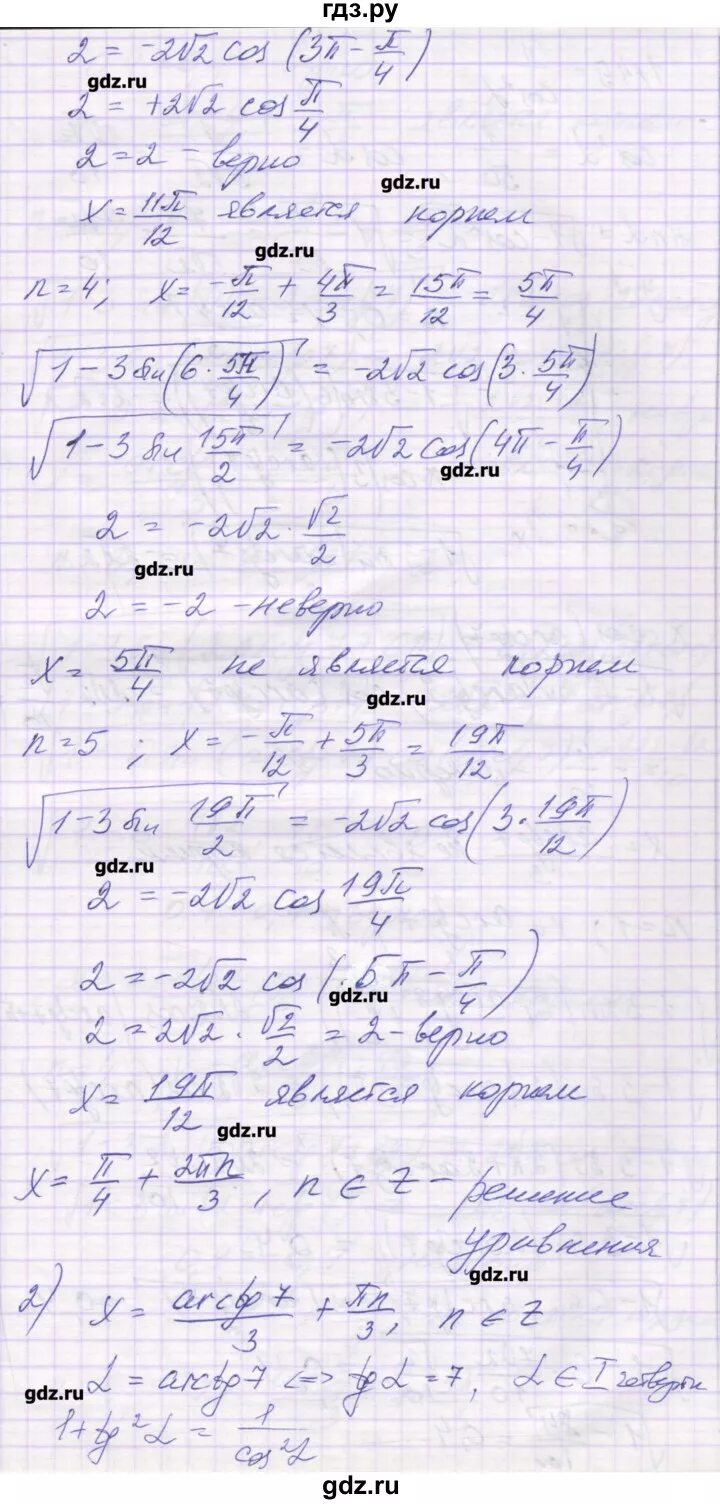 гдз.ру
2 = -2√2 cos (3π - π/4)
gdz.ru
2 = +2√2 cos π/4
2 = 2 - верно
gdz.ru
x = 11π/12 является корнем
gdz.ru
n = 4; x = -π/12 + 4π/3 = 15π/12 = 5π/4
√(1 - 3 sin(6 · 5π/4)) = -2√2 cos(3 · 5π/4)
√(1 - 3 sin 15π/2) = -2√2 cos(4π - π/4)
gdz.ru
2 = -2√2 · √2/2
gdz.ru
2 = -2 - неверно
x = 5π/4 не является корнем
gdz.ru
n = 5; x = -π/12 + 5π/3 = 19π/12
√(1 - 3 sin 19π/2) = -2√2 cos(3 · 19π/12)
gdz.ru
2 = -2√2 cos 19π/4
2 = -2√2 cos(5π - π/4)
gdz.ru
2 = 2√2 · √2/2 = 2 - верно
x = 19π/12 является корнем
gdz.ru
x = π/4 + 2πn/3, n ∈ Z - решение
уравнения
gdz.ru
2) x = arctg 7/3 + πn/3, n ∈ Z
gdz.ru
α = arctg 7 <=> tg α = 7, α ∈ I четверти
1 + tg²α = 1/cos²α
gdz.ru